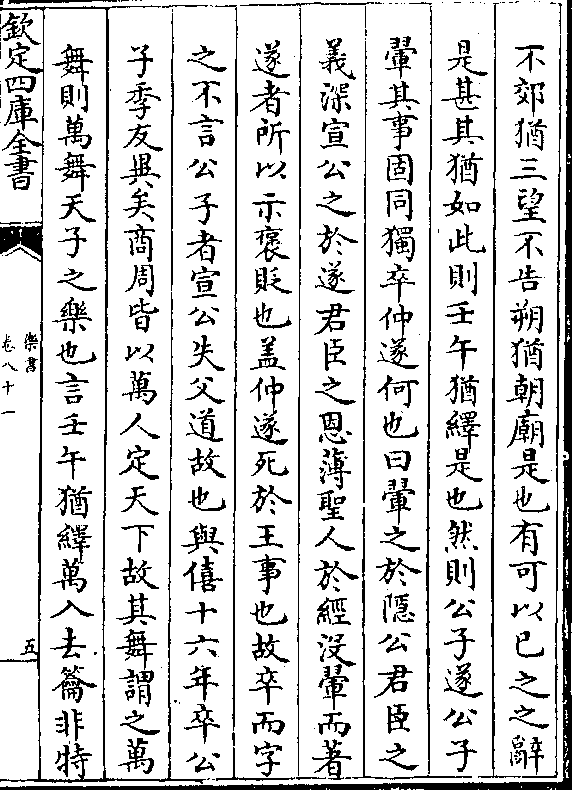 不郊猶三望不告朔猶朝廟是也有可以已之之辭
是甚其猶如此則壬午猶繹是也然則公子遂公子
翬其事固同獨卒仲遂何也曰翬之於隠公君臣之
義深宣公之於遂君臣之恩薄聖人於經没翬而著
遂者所以示褒貶也盖仲遂死於王事也故卒而字
之不言公子者宣公失父道故也與僖十六年卒公
子季友異矣商周皆以萬人定天下故其舞謂之萬
舞則萬舞天子之樂也言壬午猶繹萬入去籥非特
欽定四庫全書
樂書
卷八十一
五